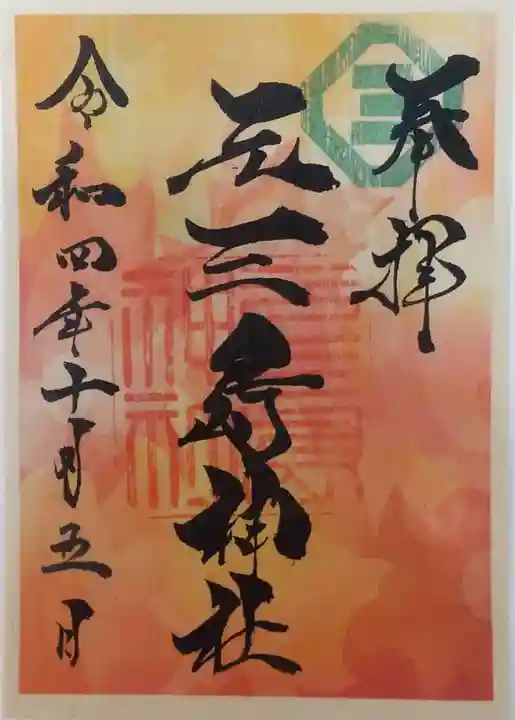 奉拝
元三島神社
令和四年十月五日